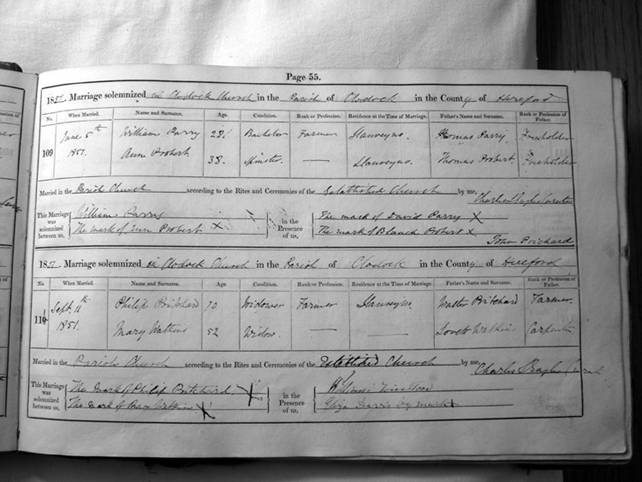 Page 55.
1851. Marriage solemnized in Clodock Church in the Parish of Clodock in the County of Hereford
No. When Married. Name and Surname. Age Condition. Rank or Profession. Residence at the Time of Marriage. Father's Name and Surname. Rank or Profession of Father.
109 June 5th 1851. William Parry 28 Bachelor Farmer Llanveyno Thomas Parry Freeholder
Ann Probert 38. Spinster — Llanveyno Thomas Probert Freeholder
Married in the Parish Church according to the Rites and Ceremonies of the Established Church by me, Charles
This Marriage was solemnized between us, William Parry
The mark of Ann Probert X
in the Presence of us, The mark of David Parry X
The mark of Blanch Probert X
John Prichard
1851. Marriage solemnized in Clodock Church in the Parish of Clodock in the County of Hereford
No. When Married. Name and Surname. Age Condition. Rank or Profession. Residence at the Time of Marriage. Father's Name and Surname. Rank or Profession of Father.
110 Sept. 1851. Philip Pritchard 70 Widower Farmer Llanveyno Walter Pritchard Farmer
Mary Watkins 52 Widow. — — Watkin Carpenter
Married in the Parish Church according to the Rites and Ceremonies of the Established Church by me, Charles
This Marriage was solemnized between us, The Mark of Philip Pritchard X
The Mark of Watkins X
in the Presence of us,
by mark X